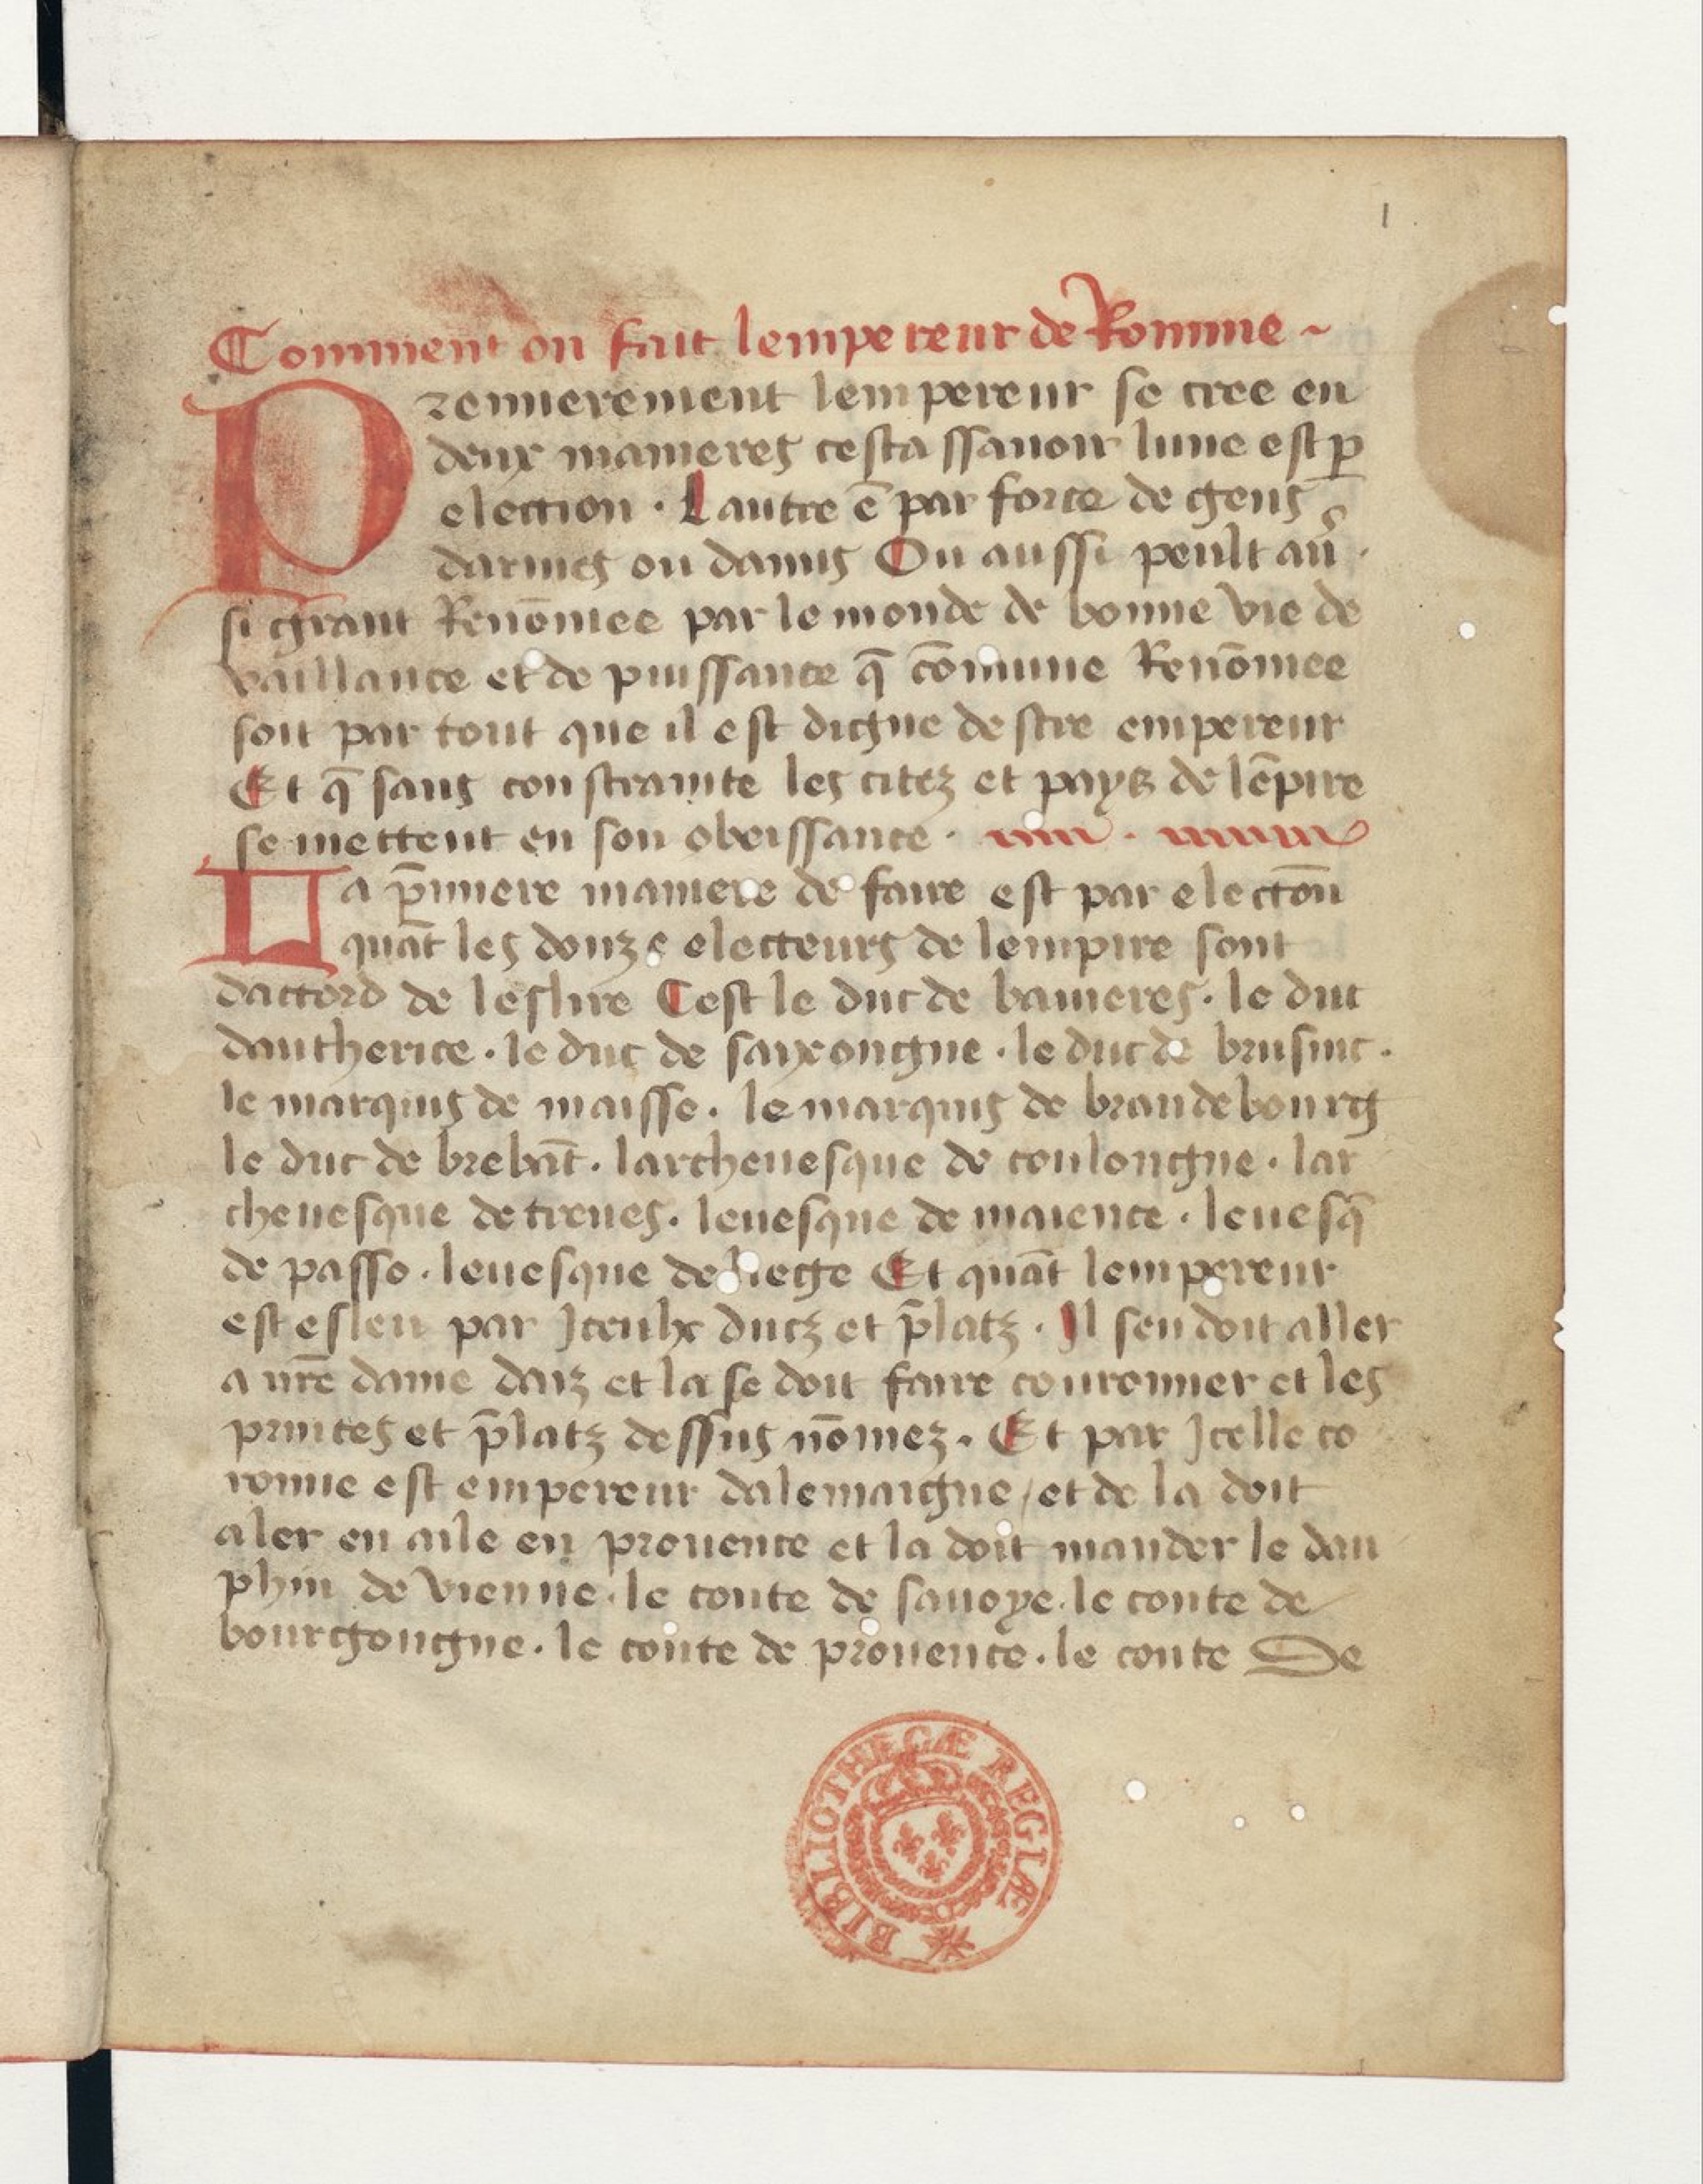 1
Comment on fait lempereur de Romme ~
Premierement lempereur se cree en
deux manieres cesta ssauoir lune est p̱
election · Lautre ē par force de gens
darmes ou damis Ou aussi peult au͛
si grant Renōmee par le monde de bonne vie de
vaillance et de puissance q̄ cōmune Renōmee
soit par tout que il est digne destre empereur
Et q̄ sans constrainte les citez et pays de lēpire
se mettent en son obeissance ·
La p̄miere maniere de faire est par electōn
quāt les douze electeurs de lempire sont
daccord de leslire Cest le duc de bauieres · le duc
dautherice · le duc de saxongne · le duc de brusuic ·
le marquis de maisse · le marquis de brandebourg
le duc de brebāt · larcheuesque de coulongne · lar
cheuesque de treues · leuesque de maience · leuesq̄
de passo · leuesque de liege Et quāt lempereur
est esleu par Iceulx ducz et p̄latz · Il sen doit aller
a nr̄e dame daiz et la se doit faire couronner et les
princes et p̄latz dessus nōmez · Et par Icelle co
ronne est empereur dalemaigne / et de la doit
aler en aile en prouence et la doit mander le dau
phin de vienne · le conte de sauoye · le conte de
bourgongne · le conte de prouence · le conte De
BIBLIOTHECÆ REGIÆ